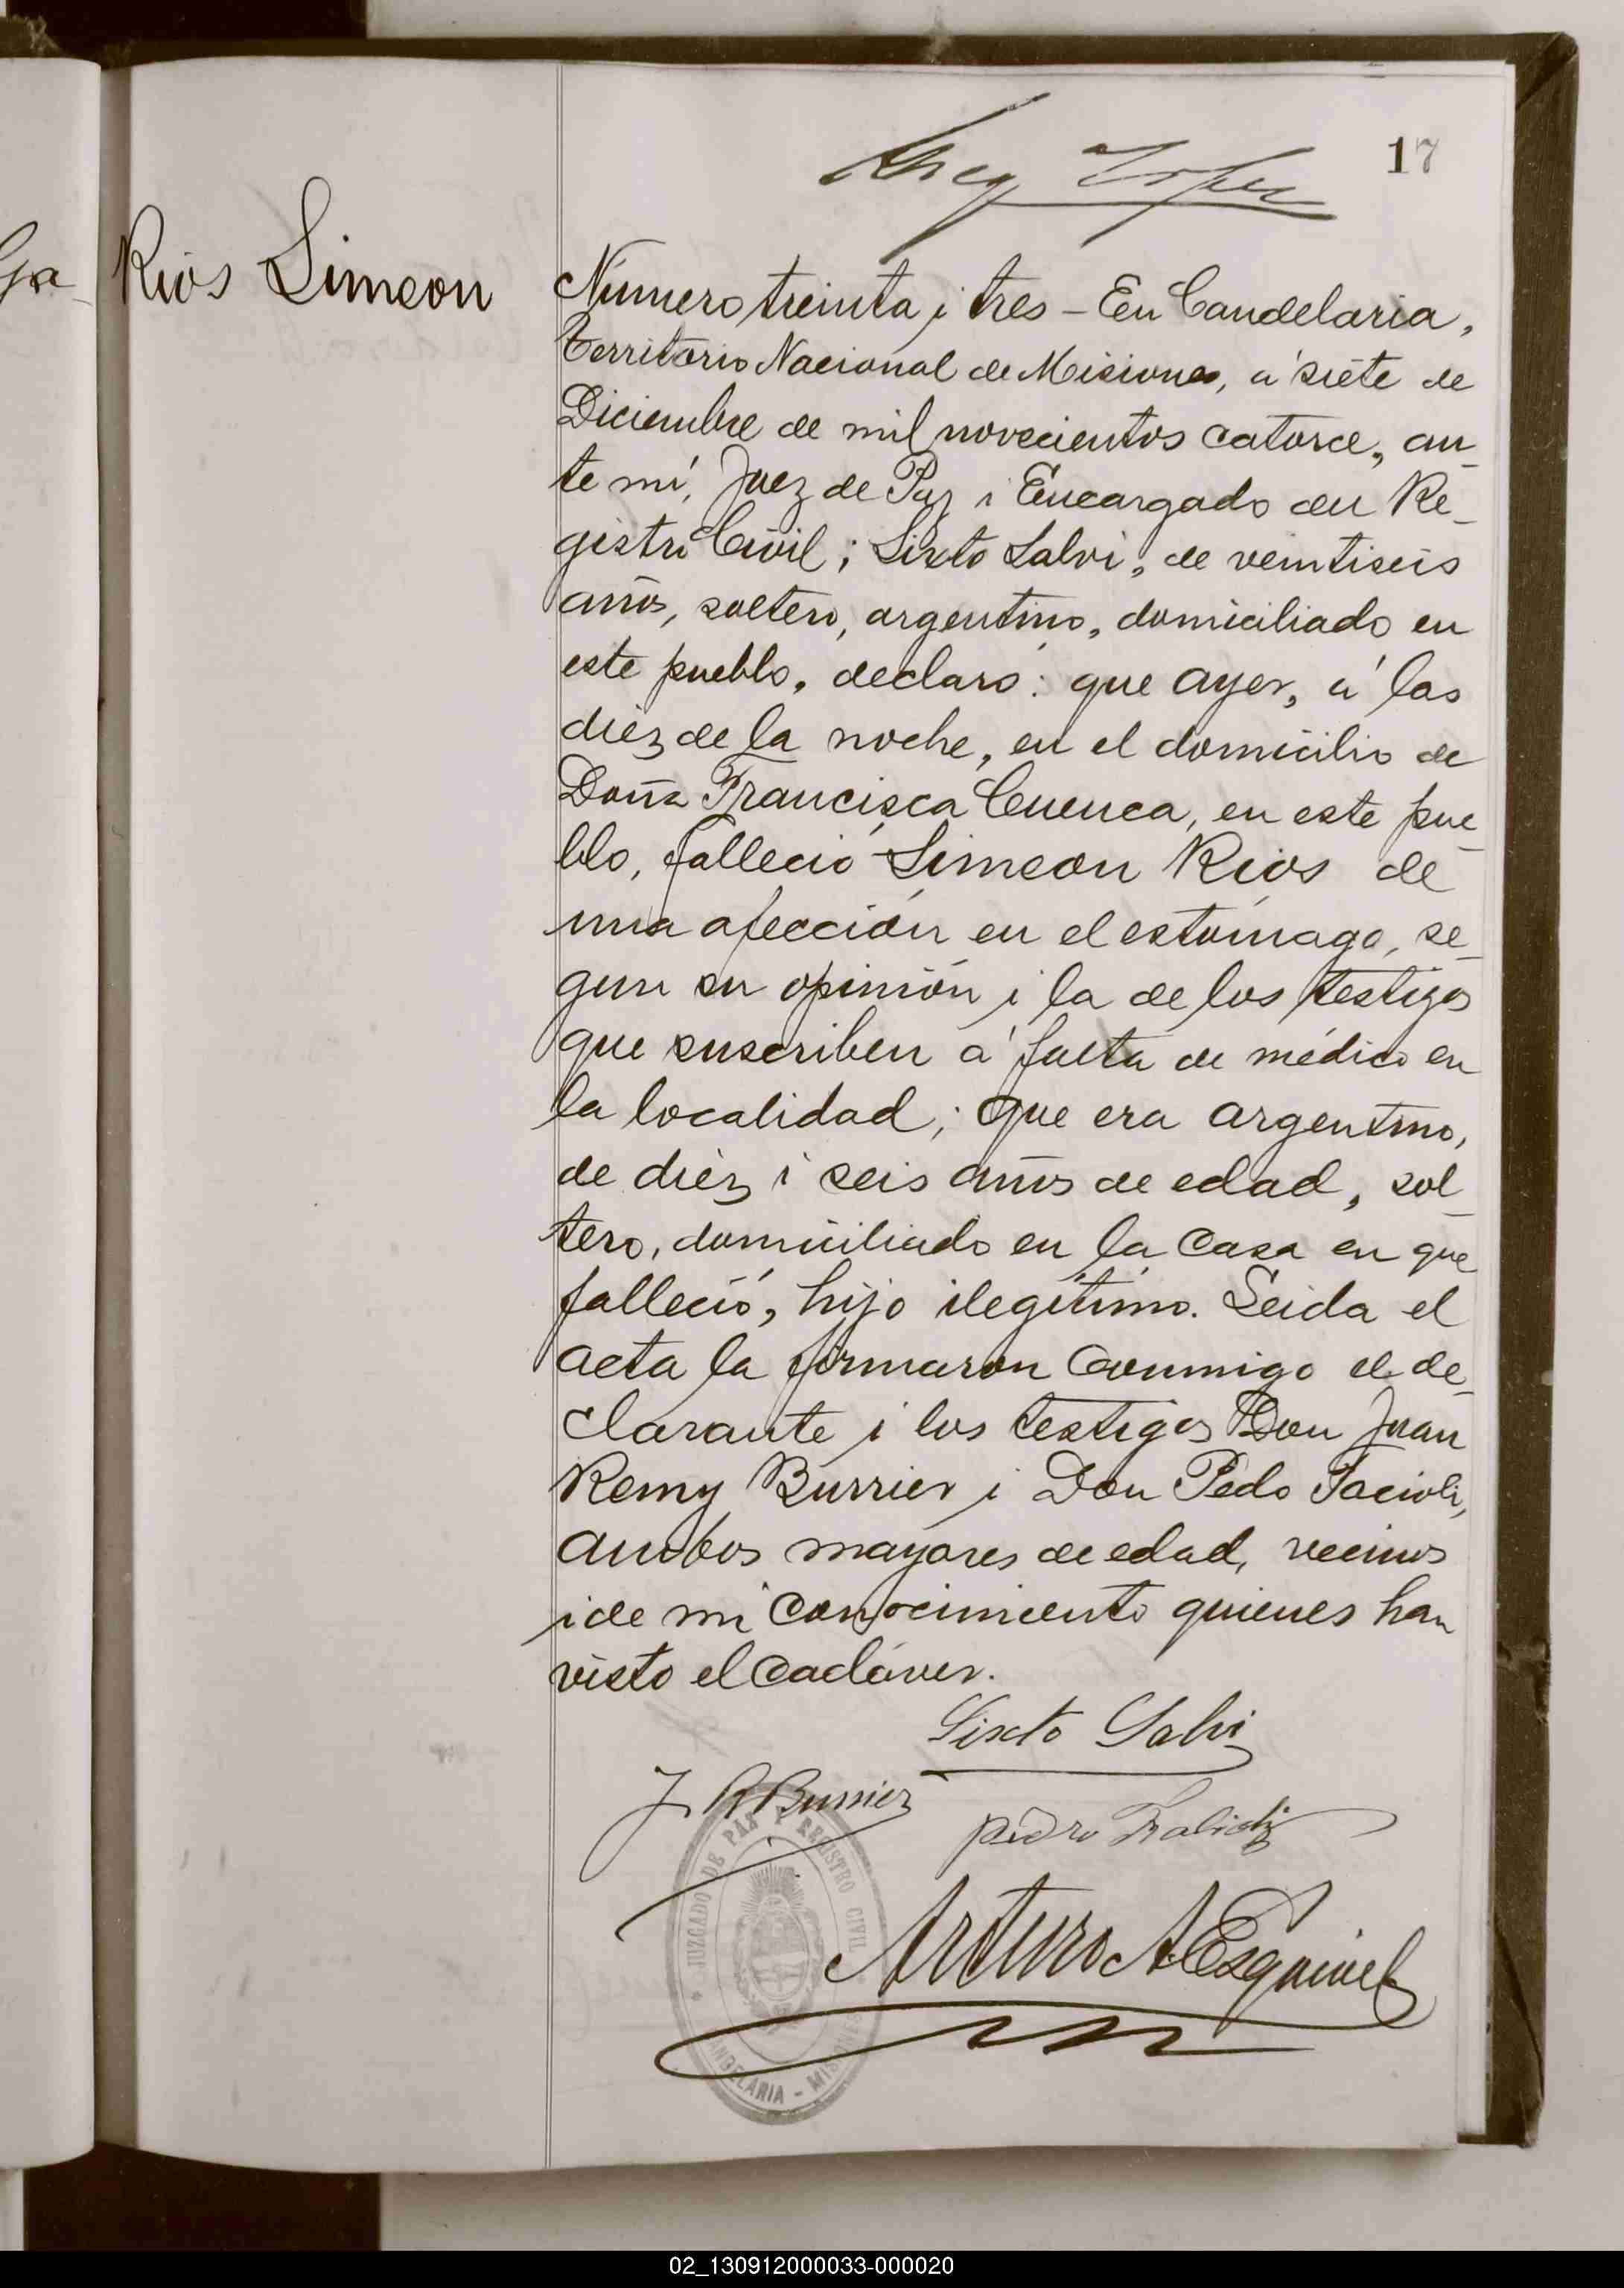 17
Rios Simeon
Número treinta i tres - En Candelaria,
Territorio Nacional de Misiones, á siete de
Diciembre de mil novecientos catorce, an-
te mí, Juez de Paz i Encargado del Re-
gistro Civil; Sixto Salvi, de veintiseis
años, soltero, argentino, domiciliado en
este pueblo, declaró: que ayer, á las
diéz de la noche, en el domicilio de
Doña Francisca Cuenca, en este pue-
blo, falleció Simeon Rios de
una afección en el estómago, se-
gun su opinión i la de los testigos
que suscriben á falta de médico en
la localidad; que era argentino,
de diéz i seis años de edad, sol-
tero, domiciliado en la casa en que
falleció, hijo ilegítimo. Leida el
acta la firmaron conmigo el de-
clarante i los testigos Don Juan
Remy Burrier i Don Pedo Facioli,
ambos mayores de edad, vecinos
i de mi conocimiento quienes han
visto el cadáver.
Sixto Salvi
J. R Burrier
pedro
JUZGADO DE PAZ Y REGISTRO CIVIL
CANDELARIA - MISIONES
Arturo A Esquivel
02_130912000033-000020